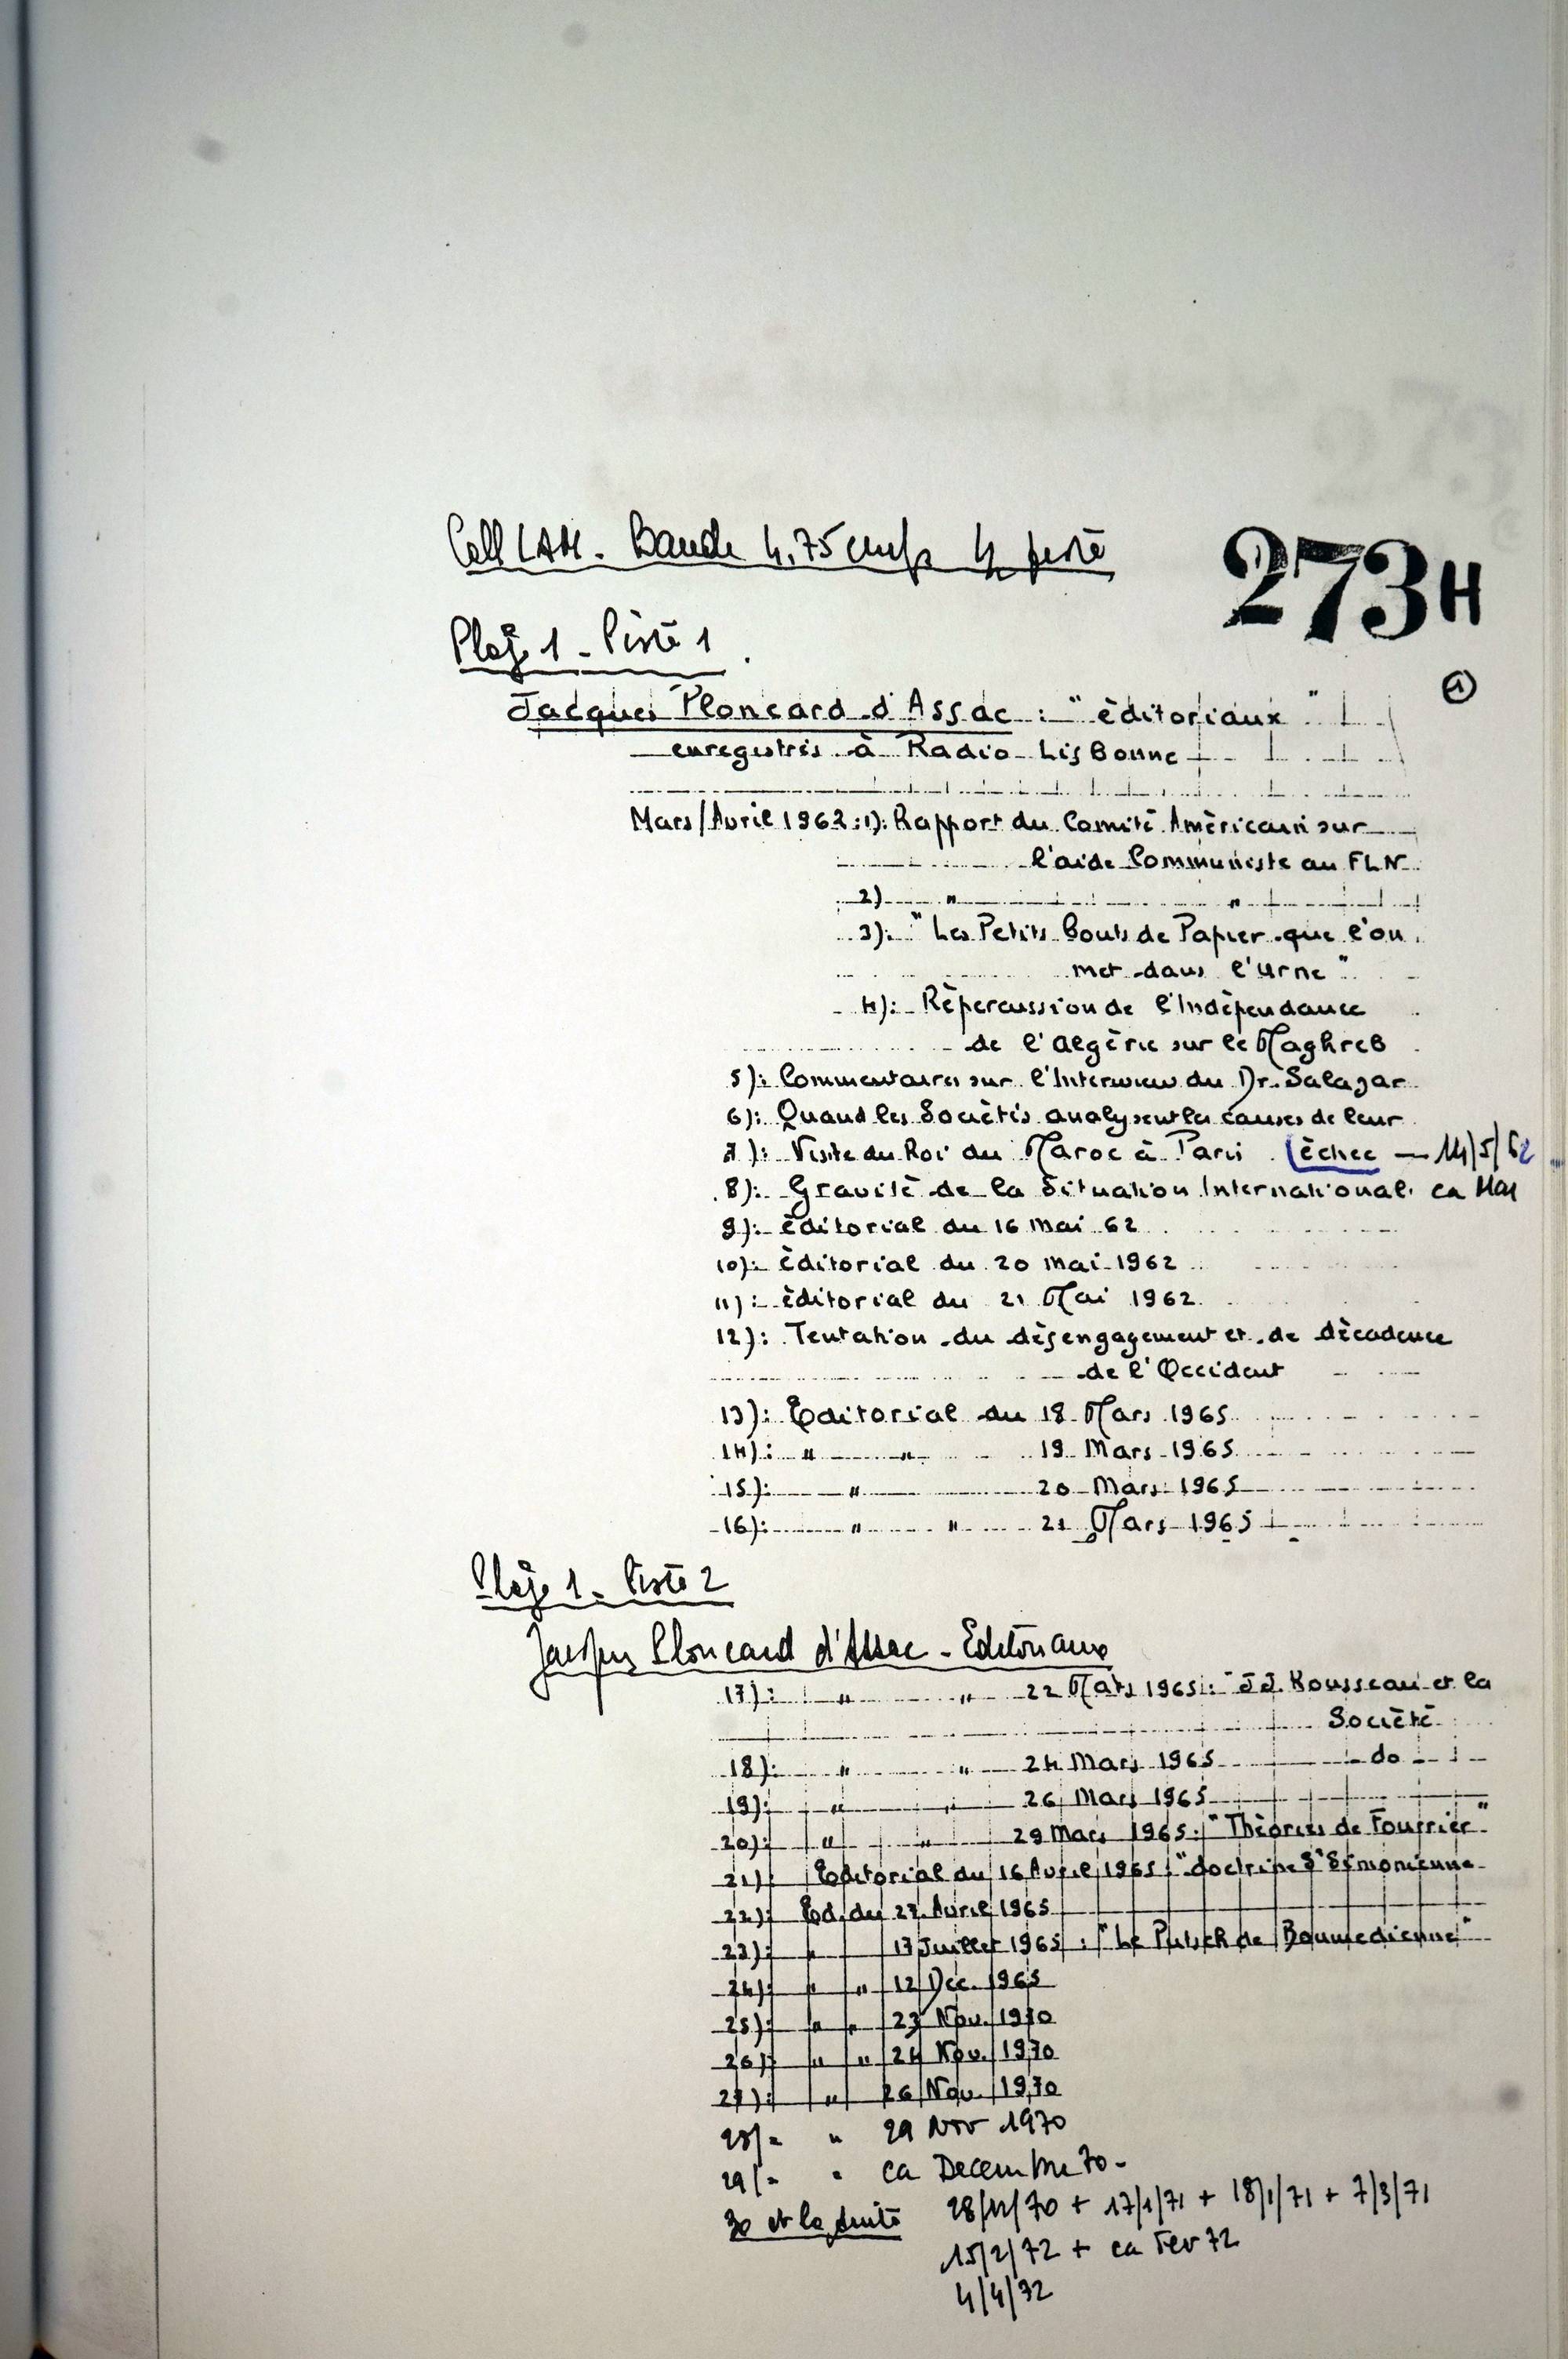 Coll LAM - Bande 4,75 cm/s 4 pistes
273 H
Plage 1 - Piste 1
1
Jacques Ploncard d'Assac : "éditoriaux"
enregistrés à Radio Lisbonne
Mars/Avril 1962 : 1): Rapport du Comité Américain sur
l'aide Communiste au FLN
2) " "
3): "Les Petits bouts de Papier que l'on
met dans l'Urne"
4): Répercussion de l'Indépendance
de l'Algérie sur le Maghreb
5): Commentaires sur l'Interview du Dr. Salazar
6): Quand les Sociétés analysent les causes de leur
7): Visite du Roi du Maroc à Paris (échec — 14/5/62
8): Gravité de la Situation International. ca Mai
9): éditorial du 16 mai 62
10): éditorial du 20 mai 1962
11): éditorial du 21 Mai 1962
12): Tentation du désengagement et de décadence
de l'Occident
13): Editorial du 18 Mars 1965
14): " " 19 Mars 1965
15): " 20 Mars 1965
16): " " 21 Mars 1965
Plage 1 - Piste 2
Jacques Ploncard d'Assac - Editoriaux
17): " " 22 Mars 1965 : "JJ. Rousseau et la
Société
18): " " 24 Mars 1965 do
19): " " 26 Mars 1965
20): " " 29 Mars 1965 : "Théories de Fourrier"
21): Editorial du 16 Avril 1965 : "doctrine St Simonienne
22): Ed. du 27 Avril 1965
23): " 17 Juillet 1965 : "Le Putsch de Boumedienne"
24): " " 12 Dec. 1965
25): " " 23 Nov. 1970
26): " " 24 Nov. 1970
27): " 26 Nov. 1970
28/- " 29 Nov 1970
29/- " ca Decembre 70 -
30 et la suite 28/12/70 + 17/1/71 + 18/1/71 + 7/3/71
15/2/72 + ca Fev 72
4/4/72